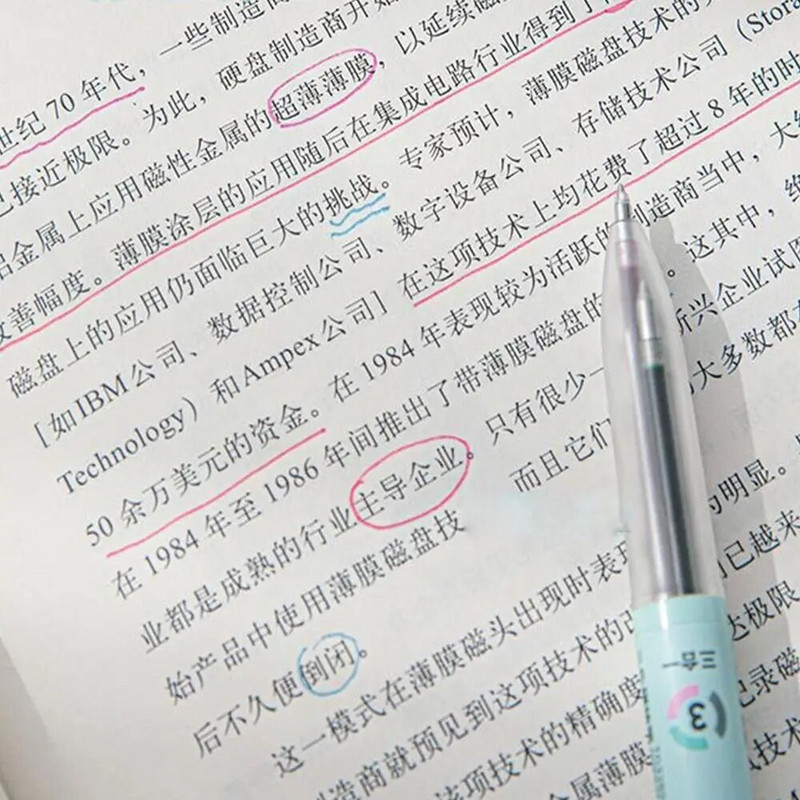 一些制造商
世纪70年代，一些制造商开始
已接近极限。为此，硬盘制造商开始
金属上应用磁性金属的超薄薄膜，以延续磁
改善幅度。薄膜涂层的应用随后在集成电路行业得到了
磁盘上的应用仍面临巨大的挑战。专家预计，薄膜磁盘技术的
［如IBM公司、数据控制公司、数字设备公司、存储技术公司（Stora
Technology）和Ampex公司］在这项技术上均花费了超过8年的时
50余万美元的资金。在1984年表现较为活跃的制造商当中，大
在1984年至1986年间推出了带薄膜磁盘的 。这其中，绝
业都是成熟的行业主导企业。只有很少一 新兴企业试图
始产品中使用薄膜磁盘技 而且它们 大多数都在
后不久便到闭。
这一模式在薄膜磁头出现时表现 为明显。
造商就预见到这项技术的改 已越来
该项技术的精确度 达极限
金属薄膜 记录磁
技术
三合一
3